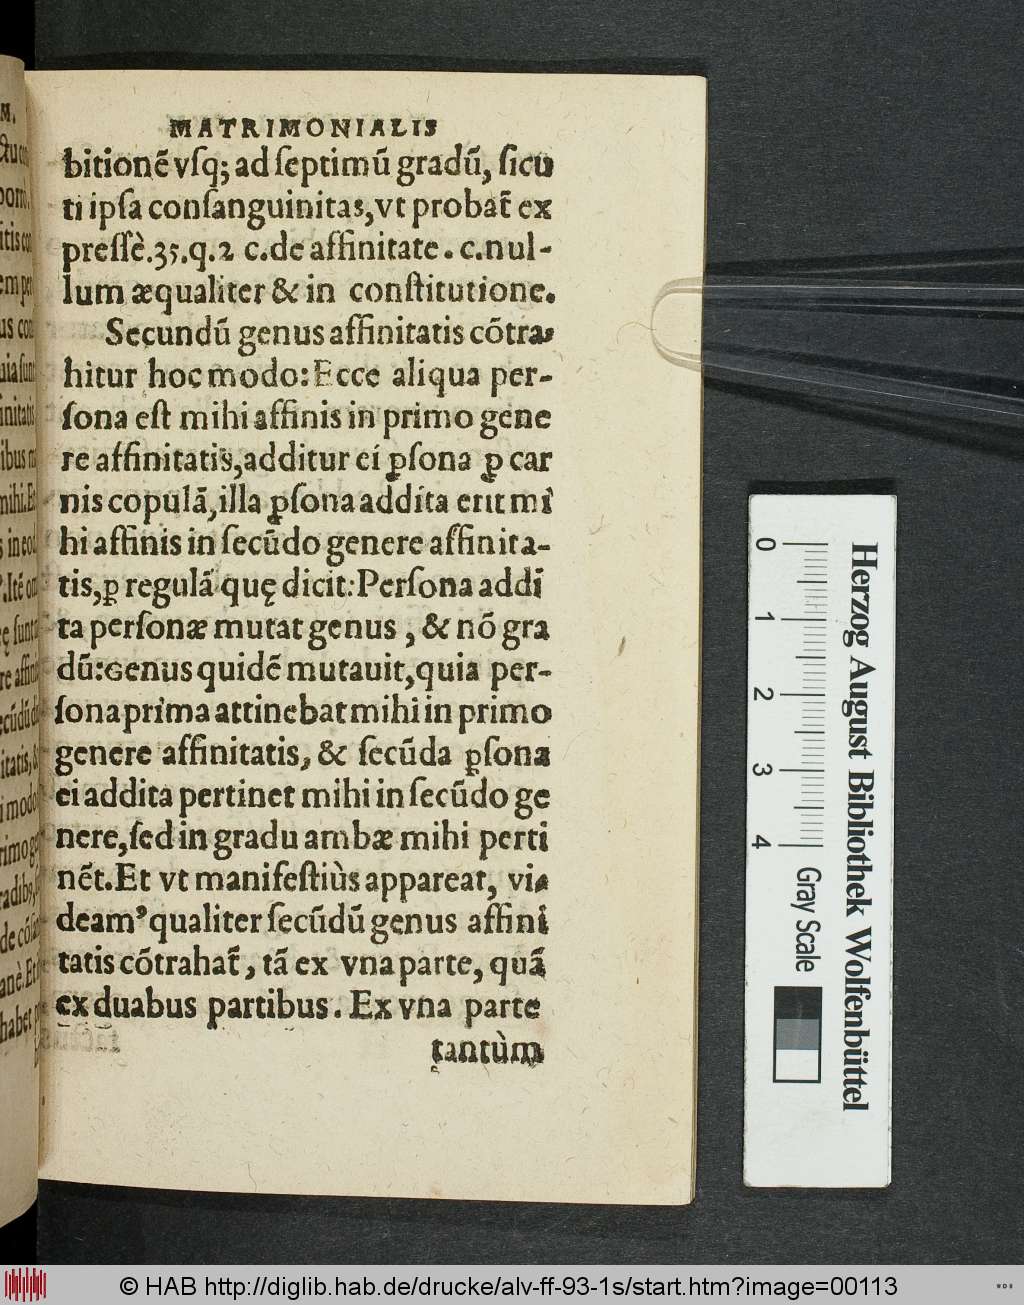 MATRIMONIALIS
bitionē vſq; ad ſeptimū gradū, ſicu
ti ipſa conſanguinitas, vt probat̃ ex
preſſè. 35. q. 2 c. de affinitate. c. nul-
lum æqualiter & in conſtitutione.
Secundū genus affinitatis cōtra-
hitur hoc modo: Ecce aliqua per-
ſona eſt mihi affinis in primo gene
re affinitatis, additur ei ꝑſona ꝑ car
nis copulā, illa ꝑſona addita erit mi
hi affinis in ſecūdo genere affinita-
tis, ꝑ regulā quę dicit: Perſona addi
ta perſonæ mutat genus, & nō gra
dū: Genus quidē mutauit, quia per-
ſona prima attinebat mihi in primo
genere affinitatis, & ſecūda ꝑſona
ei addita pertinet mihi in ſecūdo ge
nere, ſed in gradu ambæ mihi perti
nēt. Et vt manifeſtiùs appareat, vi-
deam᾽ qualiter ſecūdū genus affini
tatis cōtrahat̃, tā ex vna parte, quā
ex duabus partibus. Ex vna parte
tantùm
0 1 2 3 4
Gray Scale
Herzog August Bibliothek Wolfenbüttel
© HAB http://diglib.hab.de/drucke/alv-ff-93-1s/start.htm?image=00113